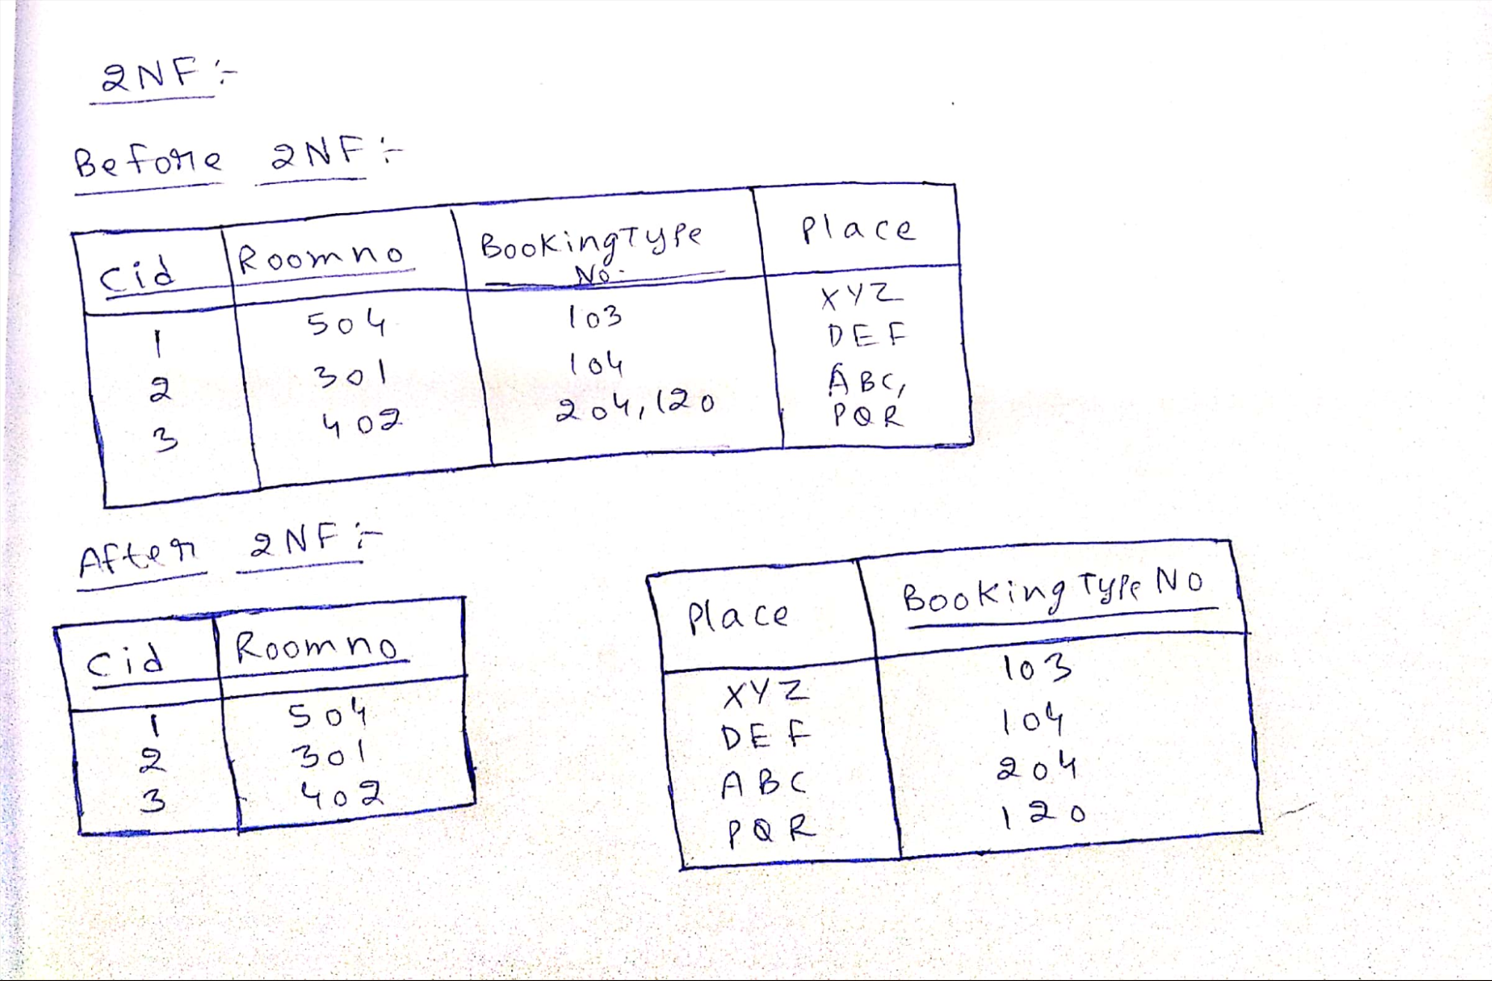 2NF :-
Before 2NF :-
Cid Roomno BookingType No. Place
1 504 103 XYZ
2 301 104 DEF
3 402 204,120 ABC, PQR
After 2NF :-
Cid Roomno
1 504
2 301
3 402
Place Booking Type No
XYZ 103
DEF 104
ABC 204
PQR 120